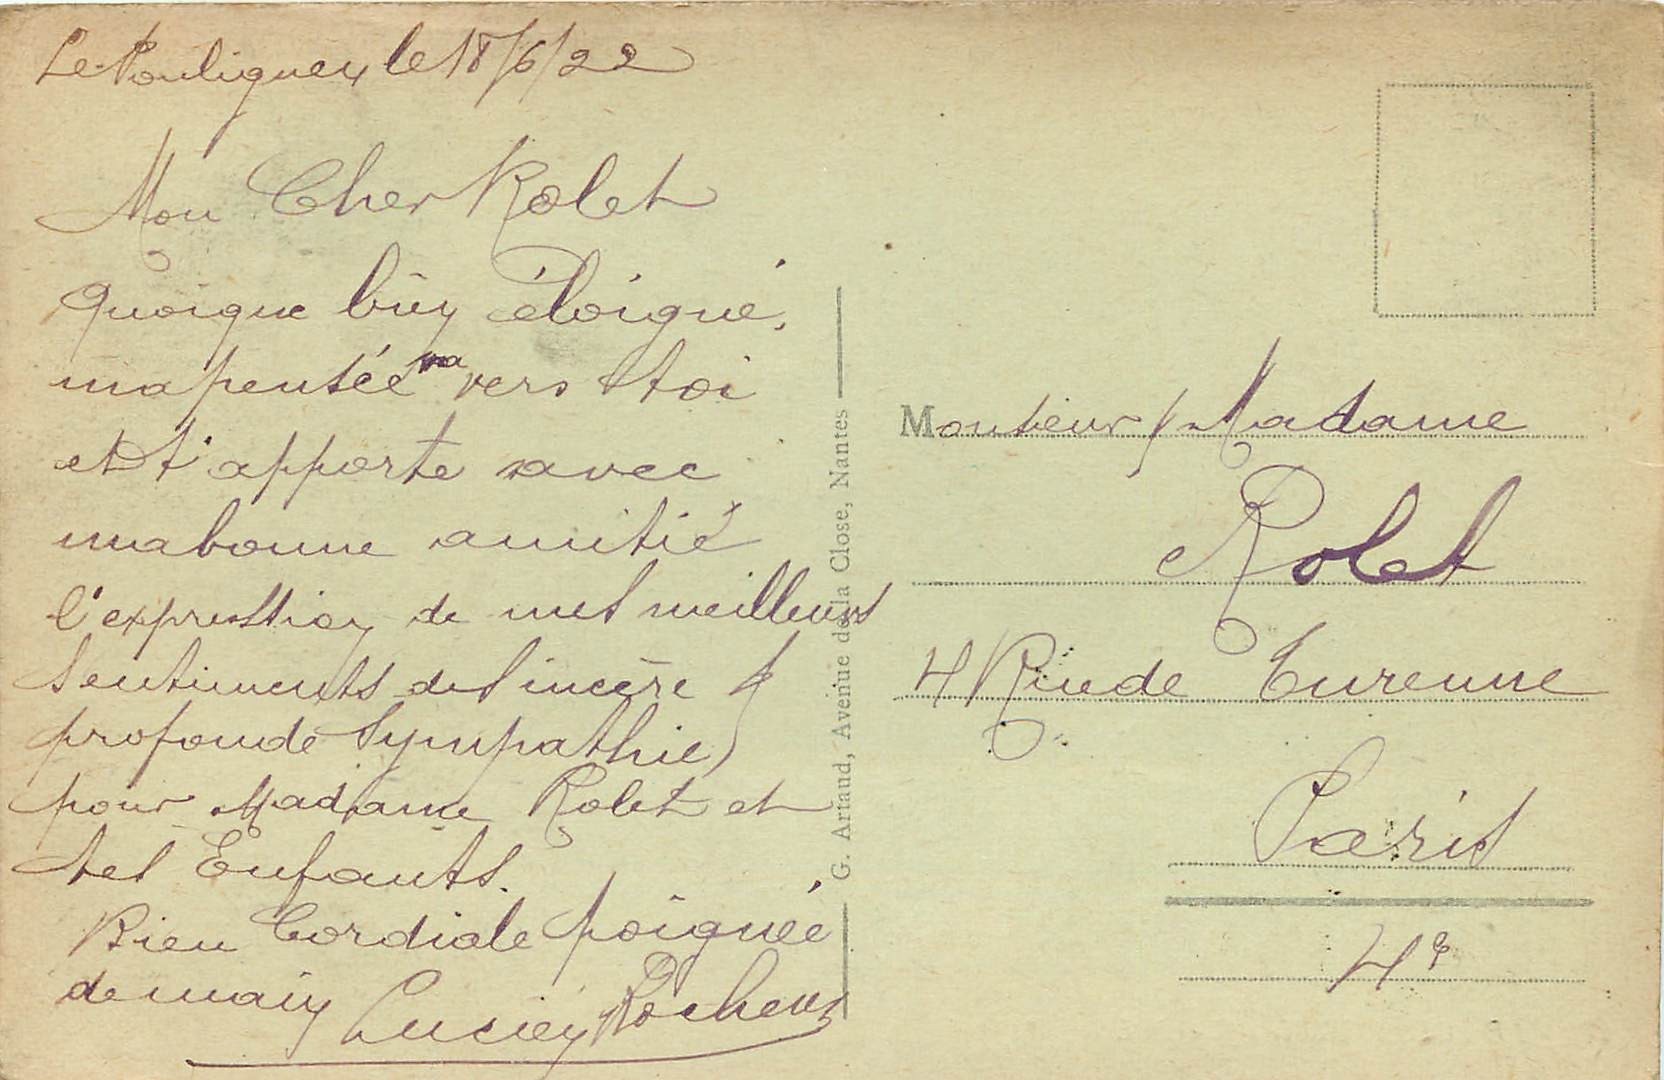 Le Pouliguen le 18/6/22
Mon Cher Rolet
Quoique bien éloigné,
ma pensée va vers toi
et t'apporte avec
ma bonne amitié
l'expression de mes meilleurs
Sentiments de sincère &
profonde Sympathie
pour Madame Rolet et
tes Enfants.
Bien Cordiale poignée
de main Lucien Rocheux
G. Artaud, Avenue de la Close, Nantes
Monsieur & Madame
Rolet
4 Rue de Turenne
Paris
4e